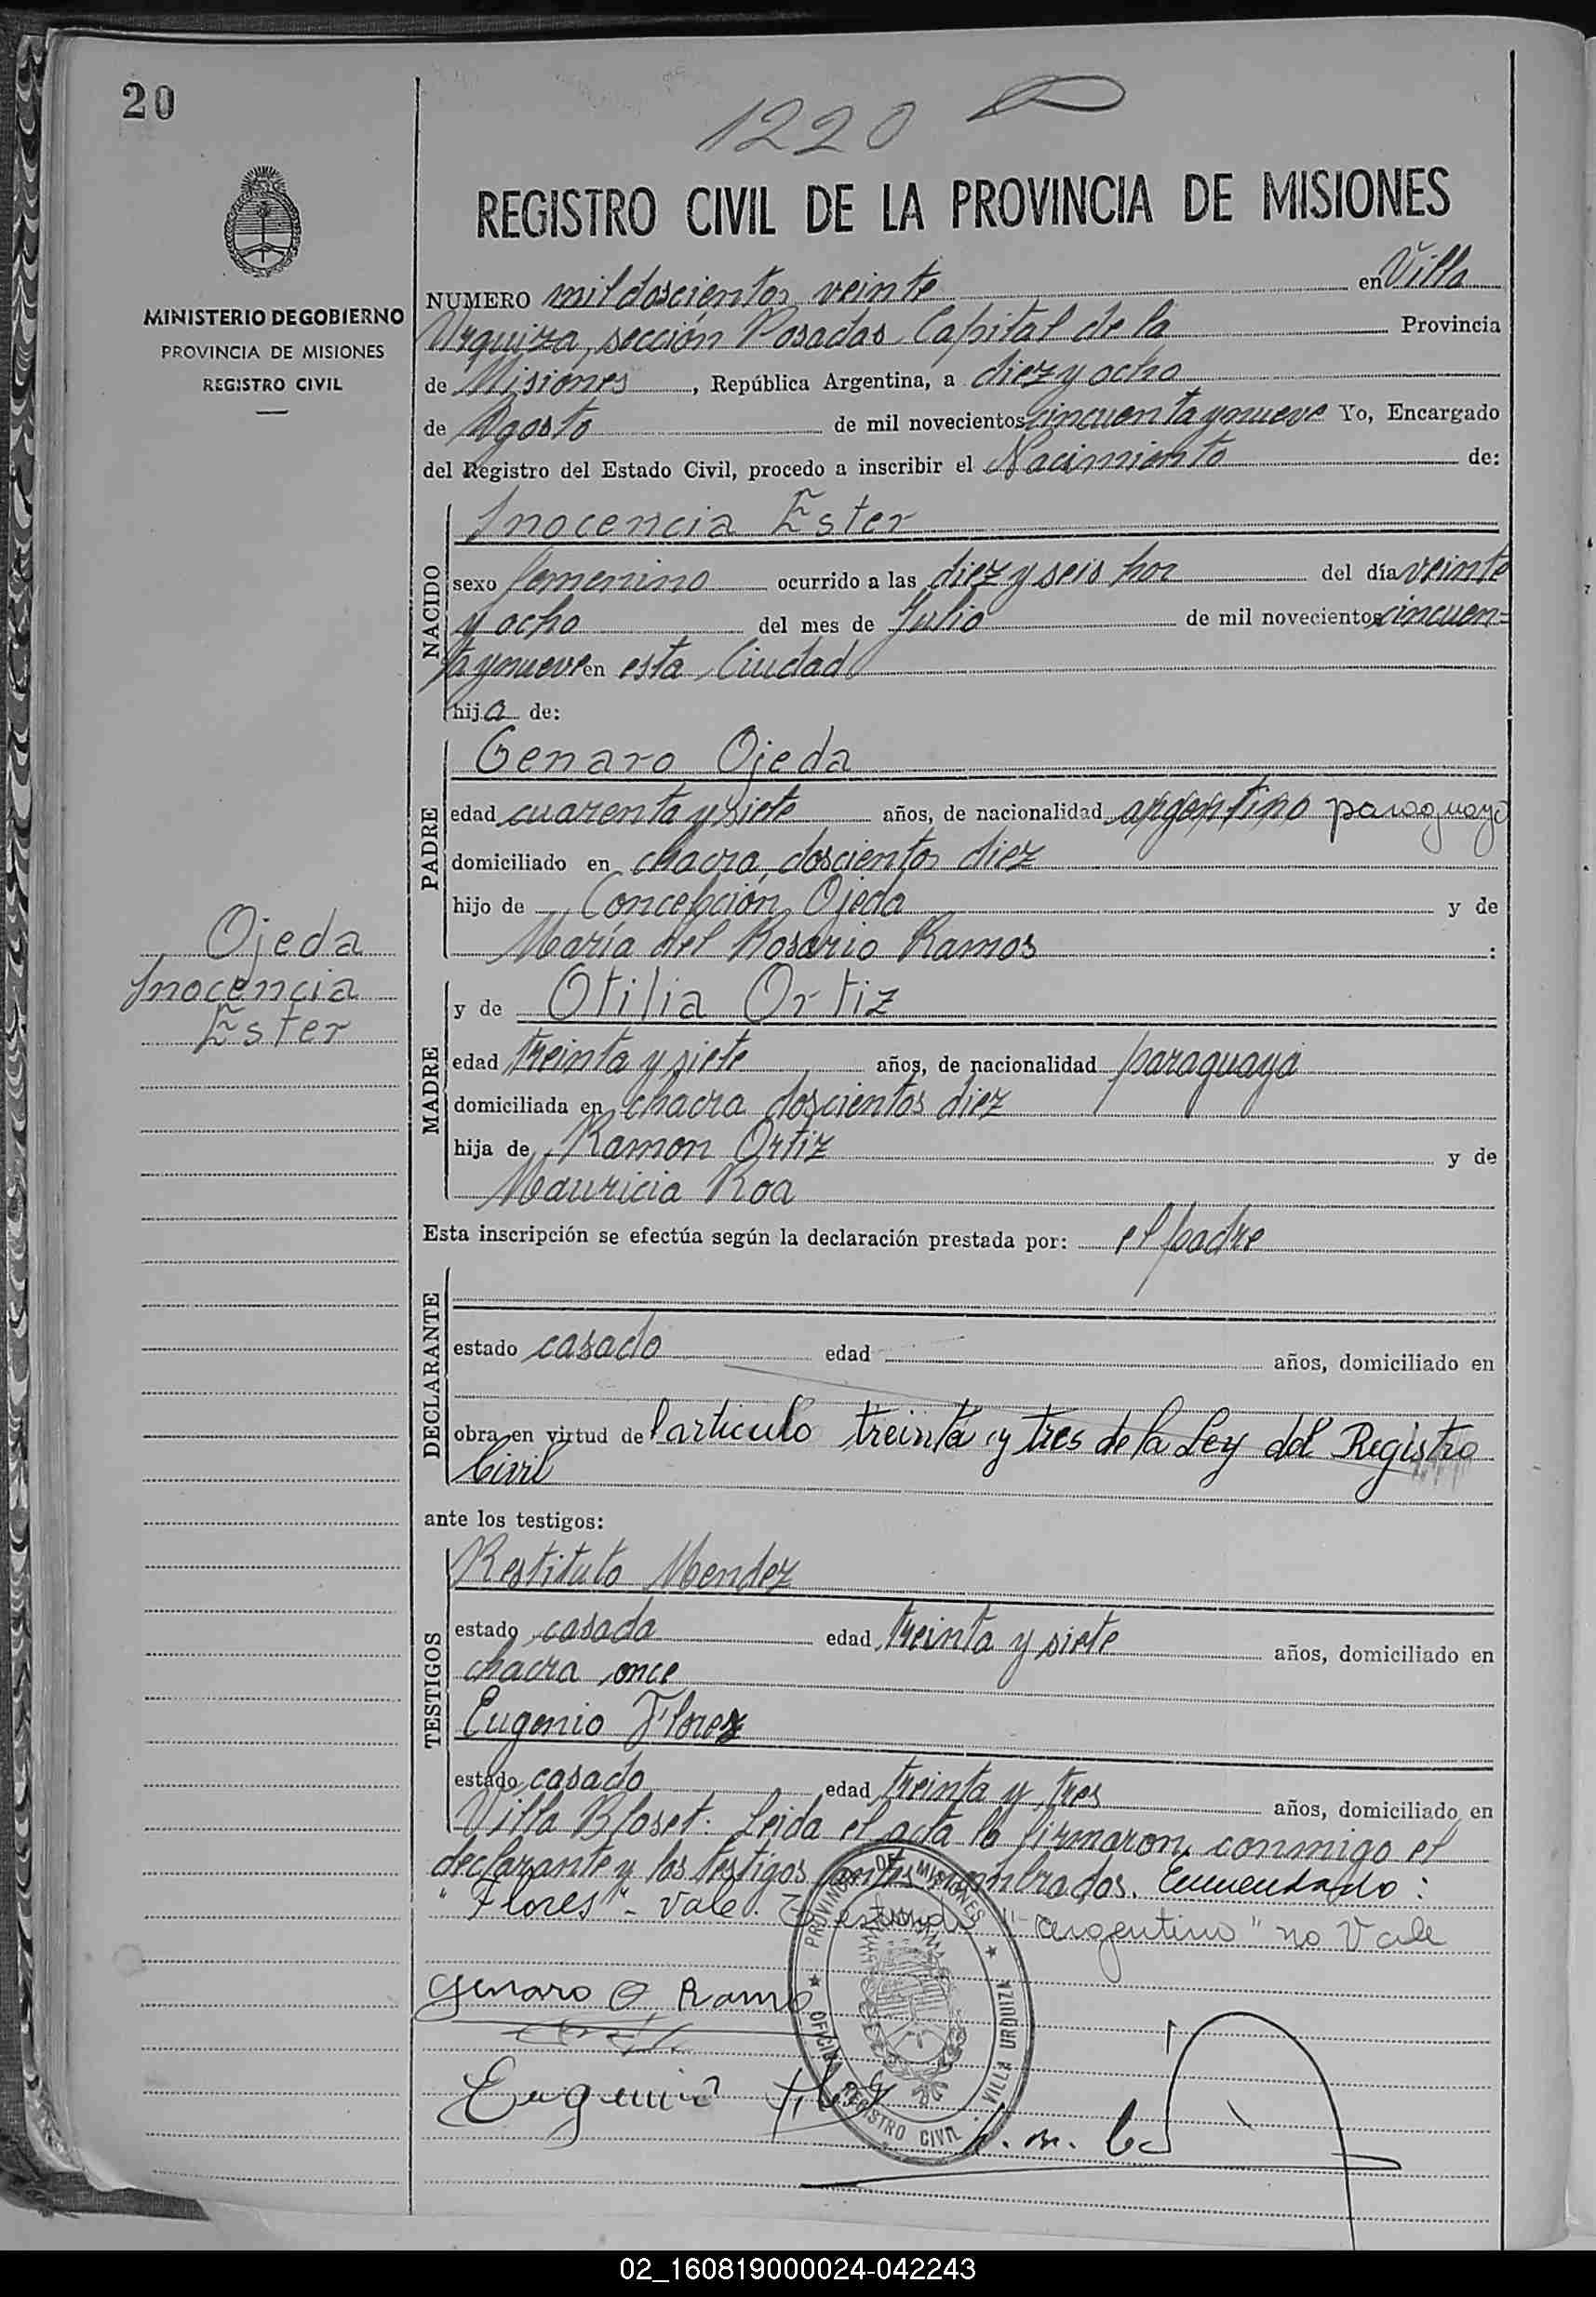 20
1220
REGISTRO CIVIL DE LA PROVINCIA DE MISIONES
MINISTERIO DE GOBIERNO
PROVINCIA DE MISIONES
REGISTRO CIVIL
NUMERO mil doscientos veinte en Villa
Urquiza, sección Posadas Capital de la Provincia
de Misiones, República Argentina, a diez y ocho
de Agosto de mil novecientos cincuenta y nueve Yo, Encargado
del Registro del Estado Civil, procedo a inscribir el Nacimiento de:
NACIDO
Inocencia Ester
sexo femenino ocurrido a las diez y seis hor del día veinte
y ocho del mes de Julio de mil novecientos cincuen=
ta y nueve en esta Ciudad
hija de:
PADRE
Genaro Ojeda
edad cuarenta y siete años, de nacionalidad argentino paraguayo
domiciliado en chacra doscientos diez
hijo de Concepción Ojeda y de
María del Rosario Ramos :
Ojeda
Inocencia
Ester
MADRE
y de Otilia Ortiz
edad treinta y siete años, de nacionalidad paraguaya
domiciliada en chacra doscientos diez
hija de Ramon Ortiz y de
Mauricia Roa
Esta inscripción se efectúa según la declaración prestada por: el padre
DECLARANTE
estado casado edad años, domiciliado en
obra en virtud del articulo treinta y tres de la Ley del Registro
Civil
ante los testigos:
TESTIGOS
Restituto Mendez
estado casado edad treinta y siete años, domiciliado en
chacra once
Eugenio Flores
estado casado edad treinta y tres años, domiciliado en
Villa Bloset. Leida el acta la firmaron conmigo el
declarante y los testigos antes nombrados. Enmendado:
"Flores" - vale. "argentino" no Vale
Genaro O. Ramos
Eugenio
PROVINCIA DE MISIONES
OFICINA REGISTRO CIVIL
VILLA URQUIZA
02_160819000024-042243